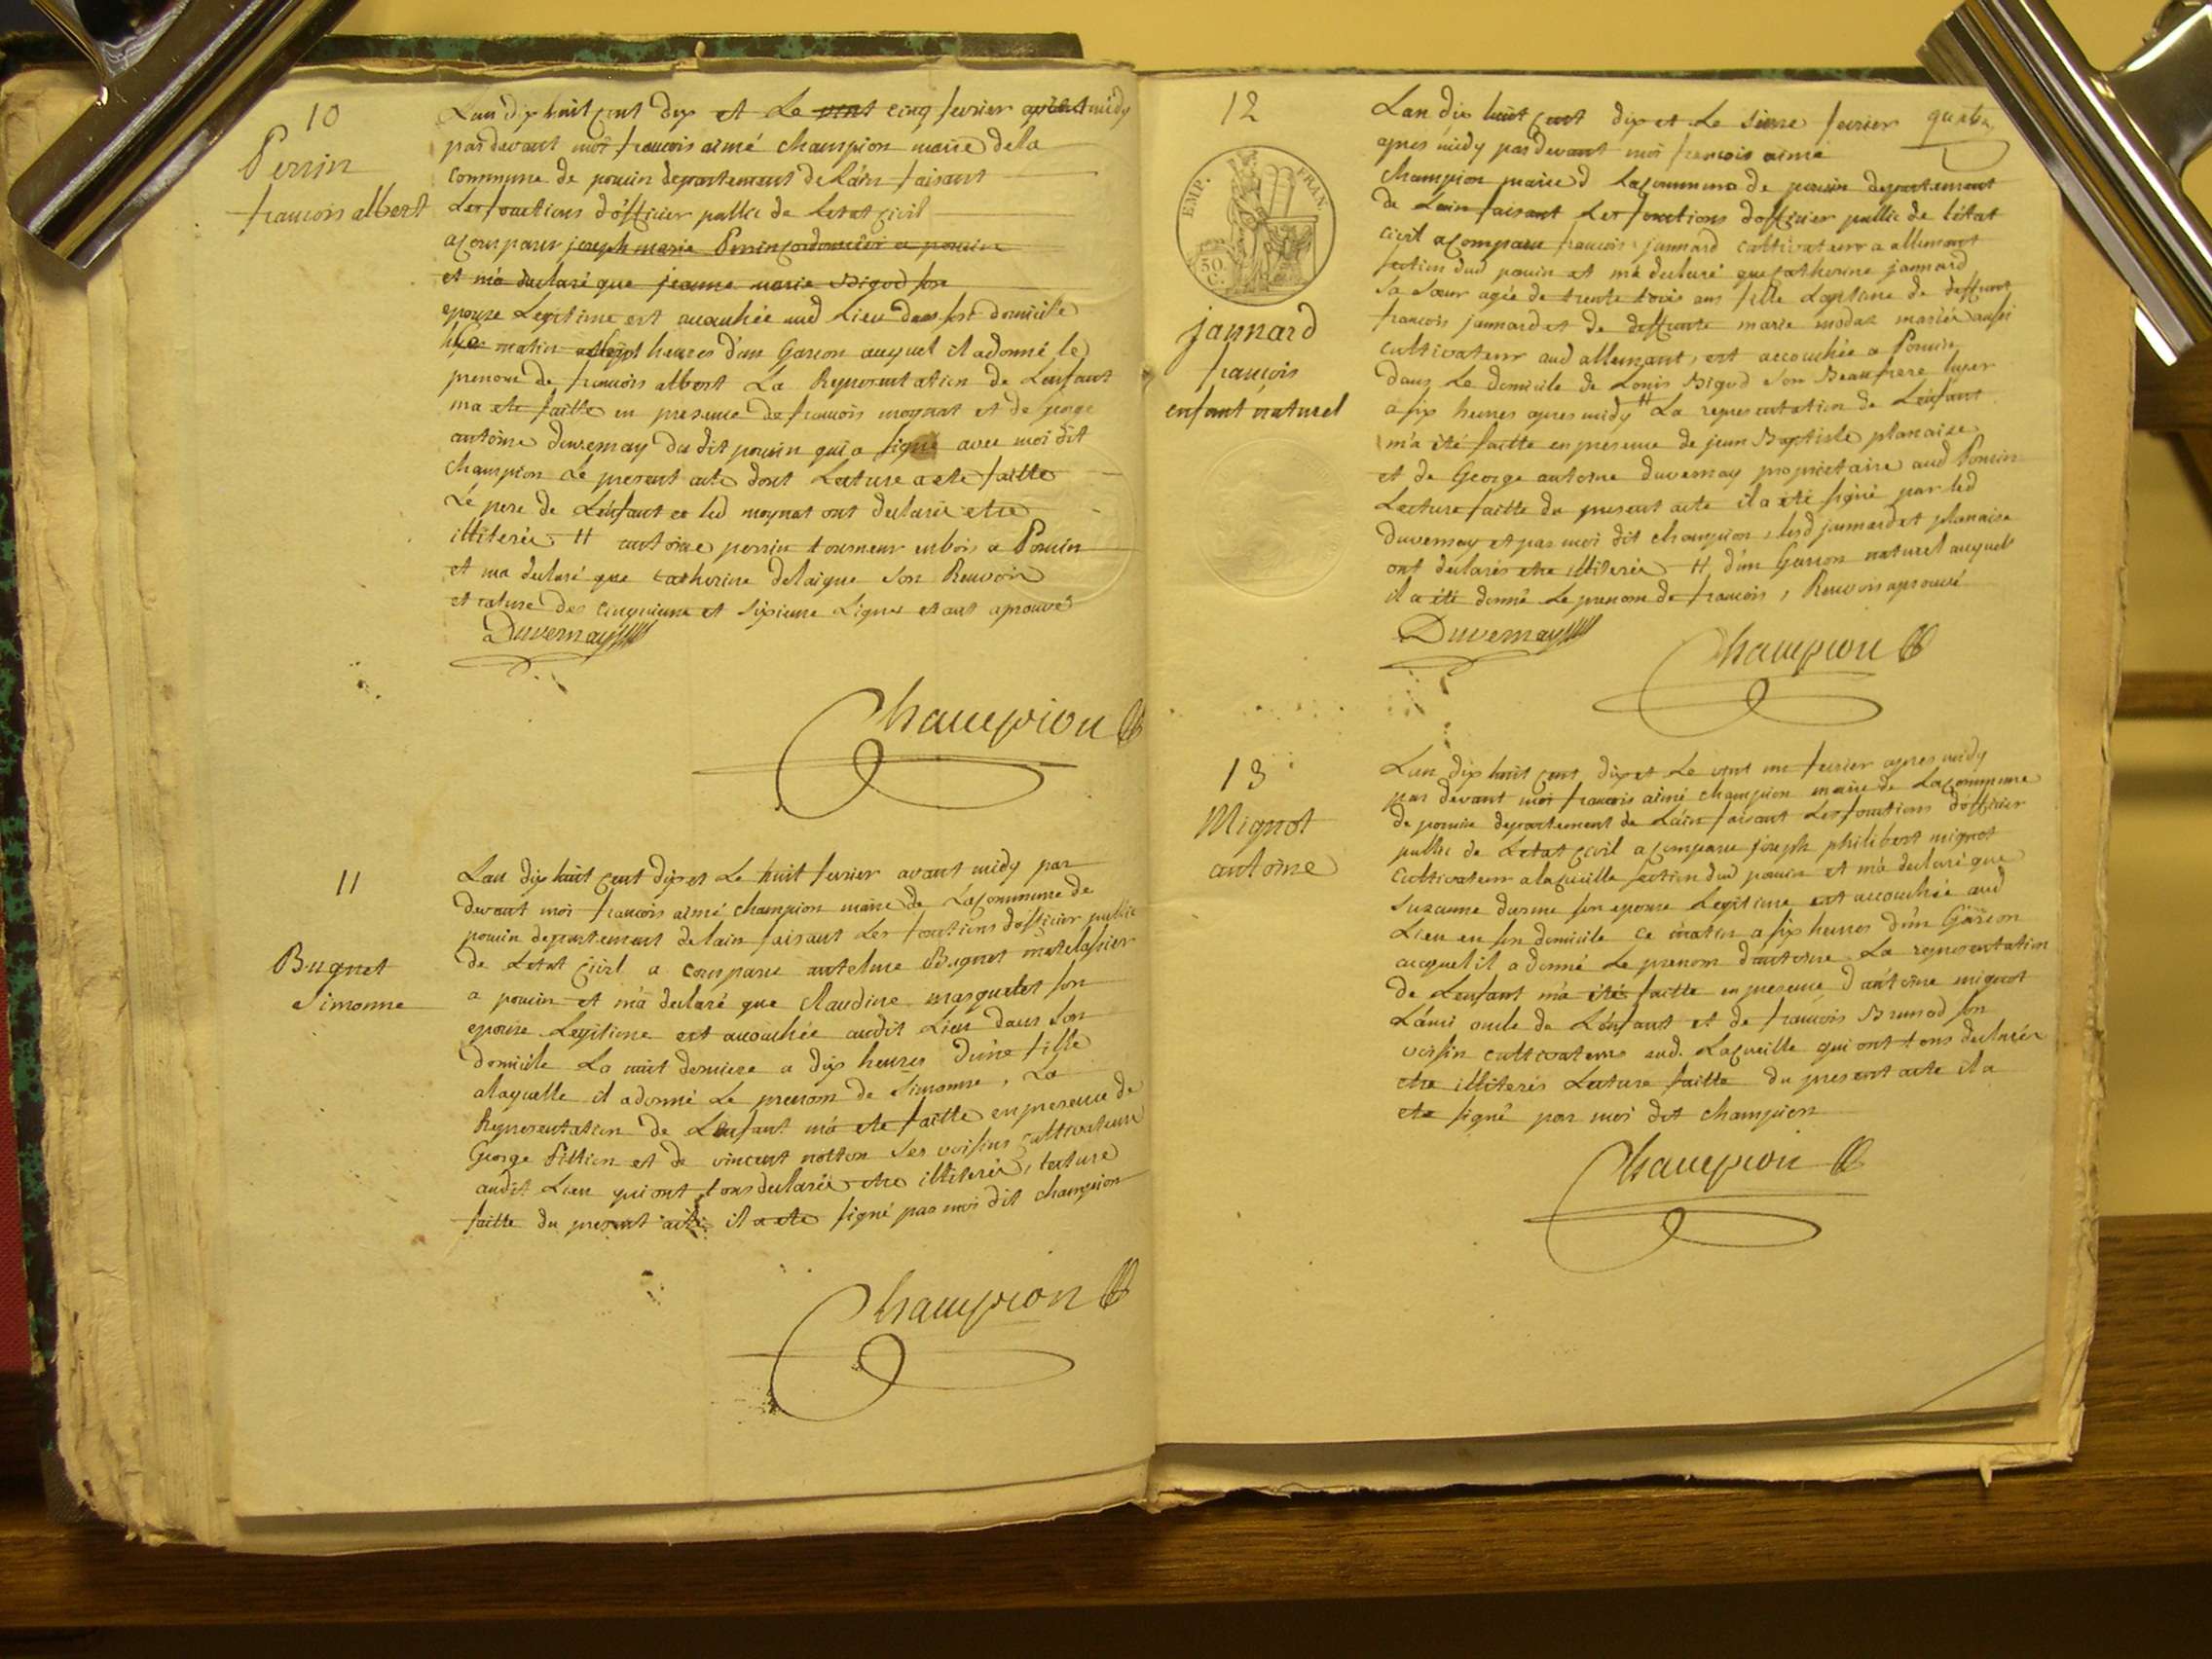 10
Perrin
francois albert
Lan dix huit cent dix et Le vent cinq fevrier avant midy
par devant moi francois aimé champion maire de la
commune de poncin departement de L'ain faisant
Les fonctions d'officier public de Letat civil
a comparu joseph marie Perrin cordonnier a poncin
et m'a declaré que jeanne marie Bigod son
epouse Legitime est accouchée aud Lieu dans son domicile
matin heures d'un Garcon auquel il a donné le
prenom de francois albert La Representation de Lenfant
m'a ete faitte en presence de francois moynat et de george
antoine duvernay du dit poncin qui a signé avec moi dit
champion Le present acte dont Lecture a ete faitte
Le pere de Lenfant et led moynat ont declaré etre
illiterés # antoine perrin tourneur en bois a Poncin
et m'a declaré que catherine delaigue son Renvoi
et rature des cinquieme et sixieme Lignes etant aprouvé
Duvernay
Champion
11
Bugnet
Simonne
Lan dix huit cent dix et Le huit fevrier avant midy par
devant moi francois aimé champion maire de La commune de
poncin departement de lain faisant Les fonctions d'officier public
de Letat civil a comparu antelme Bugnet matelassier
a poncin et m'a declaré que Claudine masquelet son
epouse Legitime est accouchée audit Lieu dans son
domicile La nuit derniere a dix heures d'une fille
a laquelle il a donné Le prenom de Simonne, La
Representation de Lenfant m'a ete faitte en presence de
George Pittion et de vincent notton Ses voisins cultivateurs
audit Lieu qui ont tous declaré etre illiterés, lecture
faitte du present acte il a ete signé par moi dit champion
Champion
12
EMP. FRAN.
50 C.
jannard
francois
enfant naturel
Lan dix huit cent dix et Le seize fevrier
apres midy par devant moi francois aimé
champion maire d La commune de poncin departement
de Lain faisant Les fonctions d'officier public de l'état
civil a comparu francois jannard cultivateur a allement
section dud poncin et m'a declaré que catherine jannard
sa soeur agée de trente trois ans fille de deffunt
francois jannard et de deffunte marie modas mariés aussi
cultivateur aud allemant, est accouchée a Poncin
dans Le domicile de Louis Bigod son Beaufrere hyer
a six heures apres midy # La representation de Lenfant
m'a été faitte en presence de jean Baptiste planaise
et de George antoine duvernay proprietaire aud Poncin
Lecture faitte du present acte il a été signé par led
duvernay et par moi dit champion, lesd jannard et planaise
ont declarés etre illiterés # d'un Garcon naturel auquel
il a été donné Le prenom de francois, Renvois aprouvé
Duvernay
Champion
13
Mignot
antoine
Lan dix huit cent dix et Le vent un fevrier apres midy
par devant moi francois aimé champion maire de La commune
de poncin departement de Lain faisant Les fonctions d'officier
public de Letat civil a comparu joseph philibert mignot
cultivateur a la cueille section dud poncin et m'a declaré que
Suzanne durme son epouse Legitime est accouchée aud
Lieu en son domicile ce matin a six heures d'un Garcon
auquel il a donné Le prenom d'antoine La representation
de Lenfant m'a etée faitte en presence d'antoine mignot
L'ainé oncle de Lenfant et de francois Brunod son
voisin cultivateurs aud. La cueille qui ont tous declarés
etre illiterés Lecture faitte du present acte il a
ete signé par moi dit champion
Champion